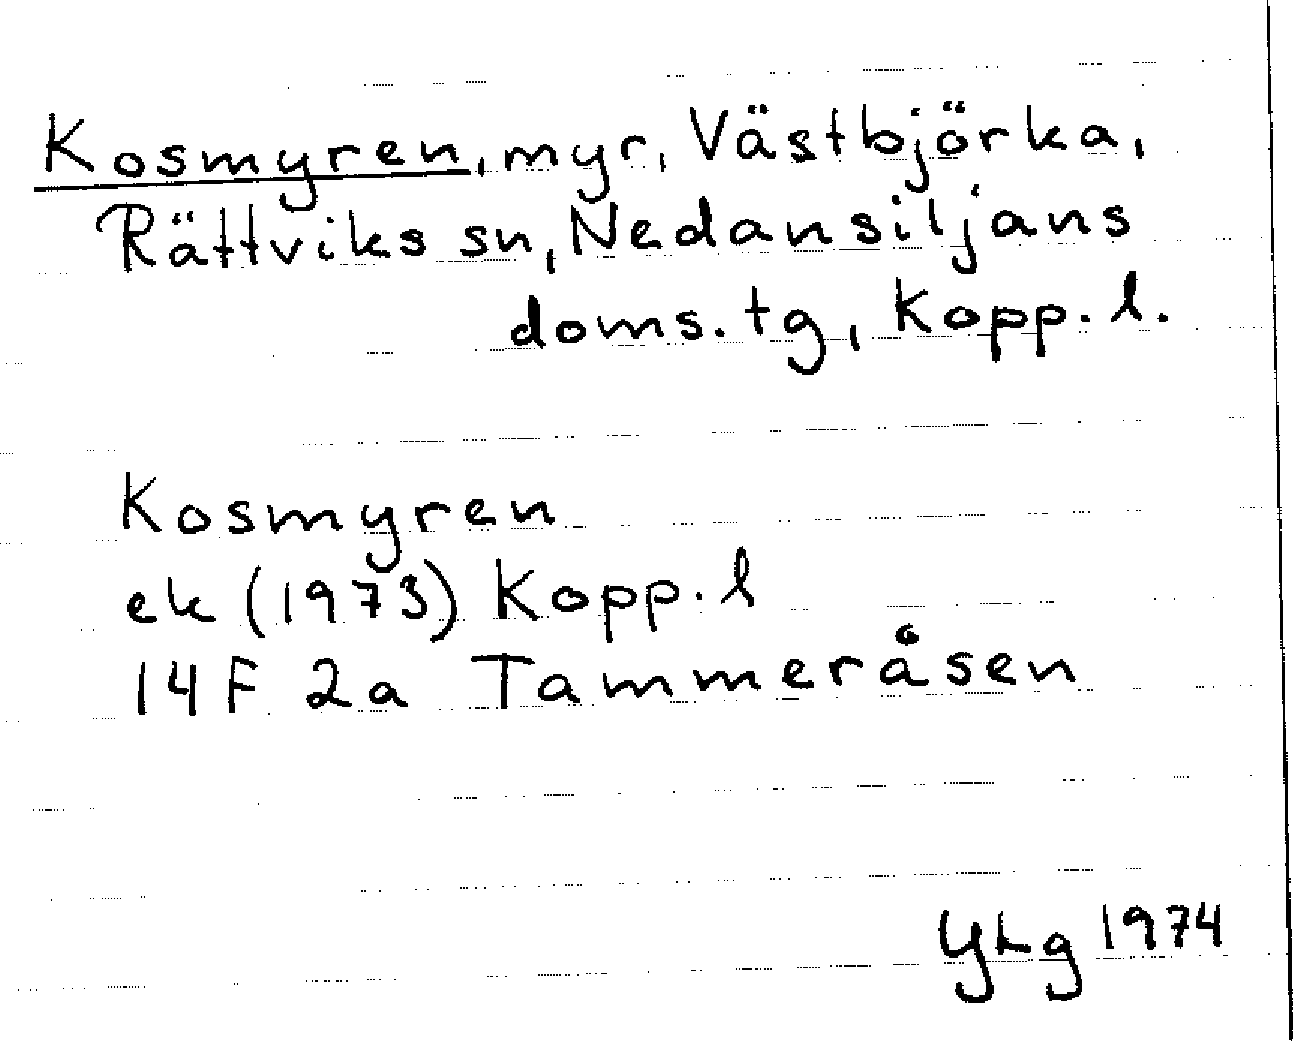 Kosmyren, myr, Västbjörka,
Rättviks sn, Nedansiljans
doms.tg, Kopp. l.
Kosmyren
ek (1973) Kopp. l
14 F 2a Tammeråsen
YLg 1974